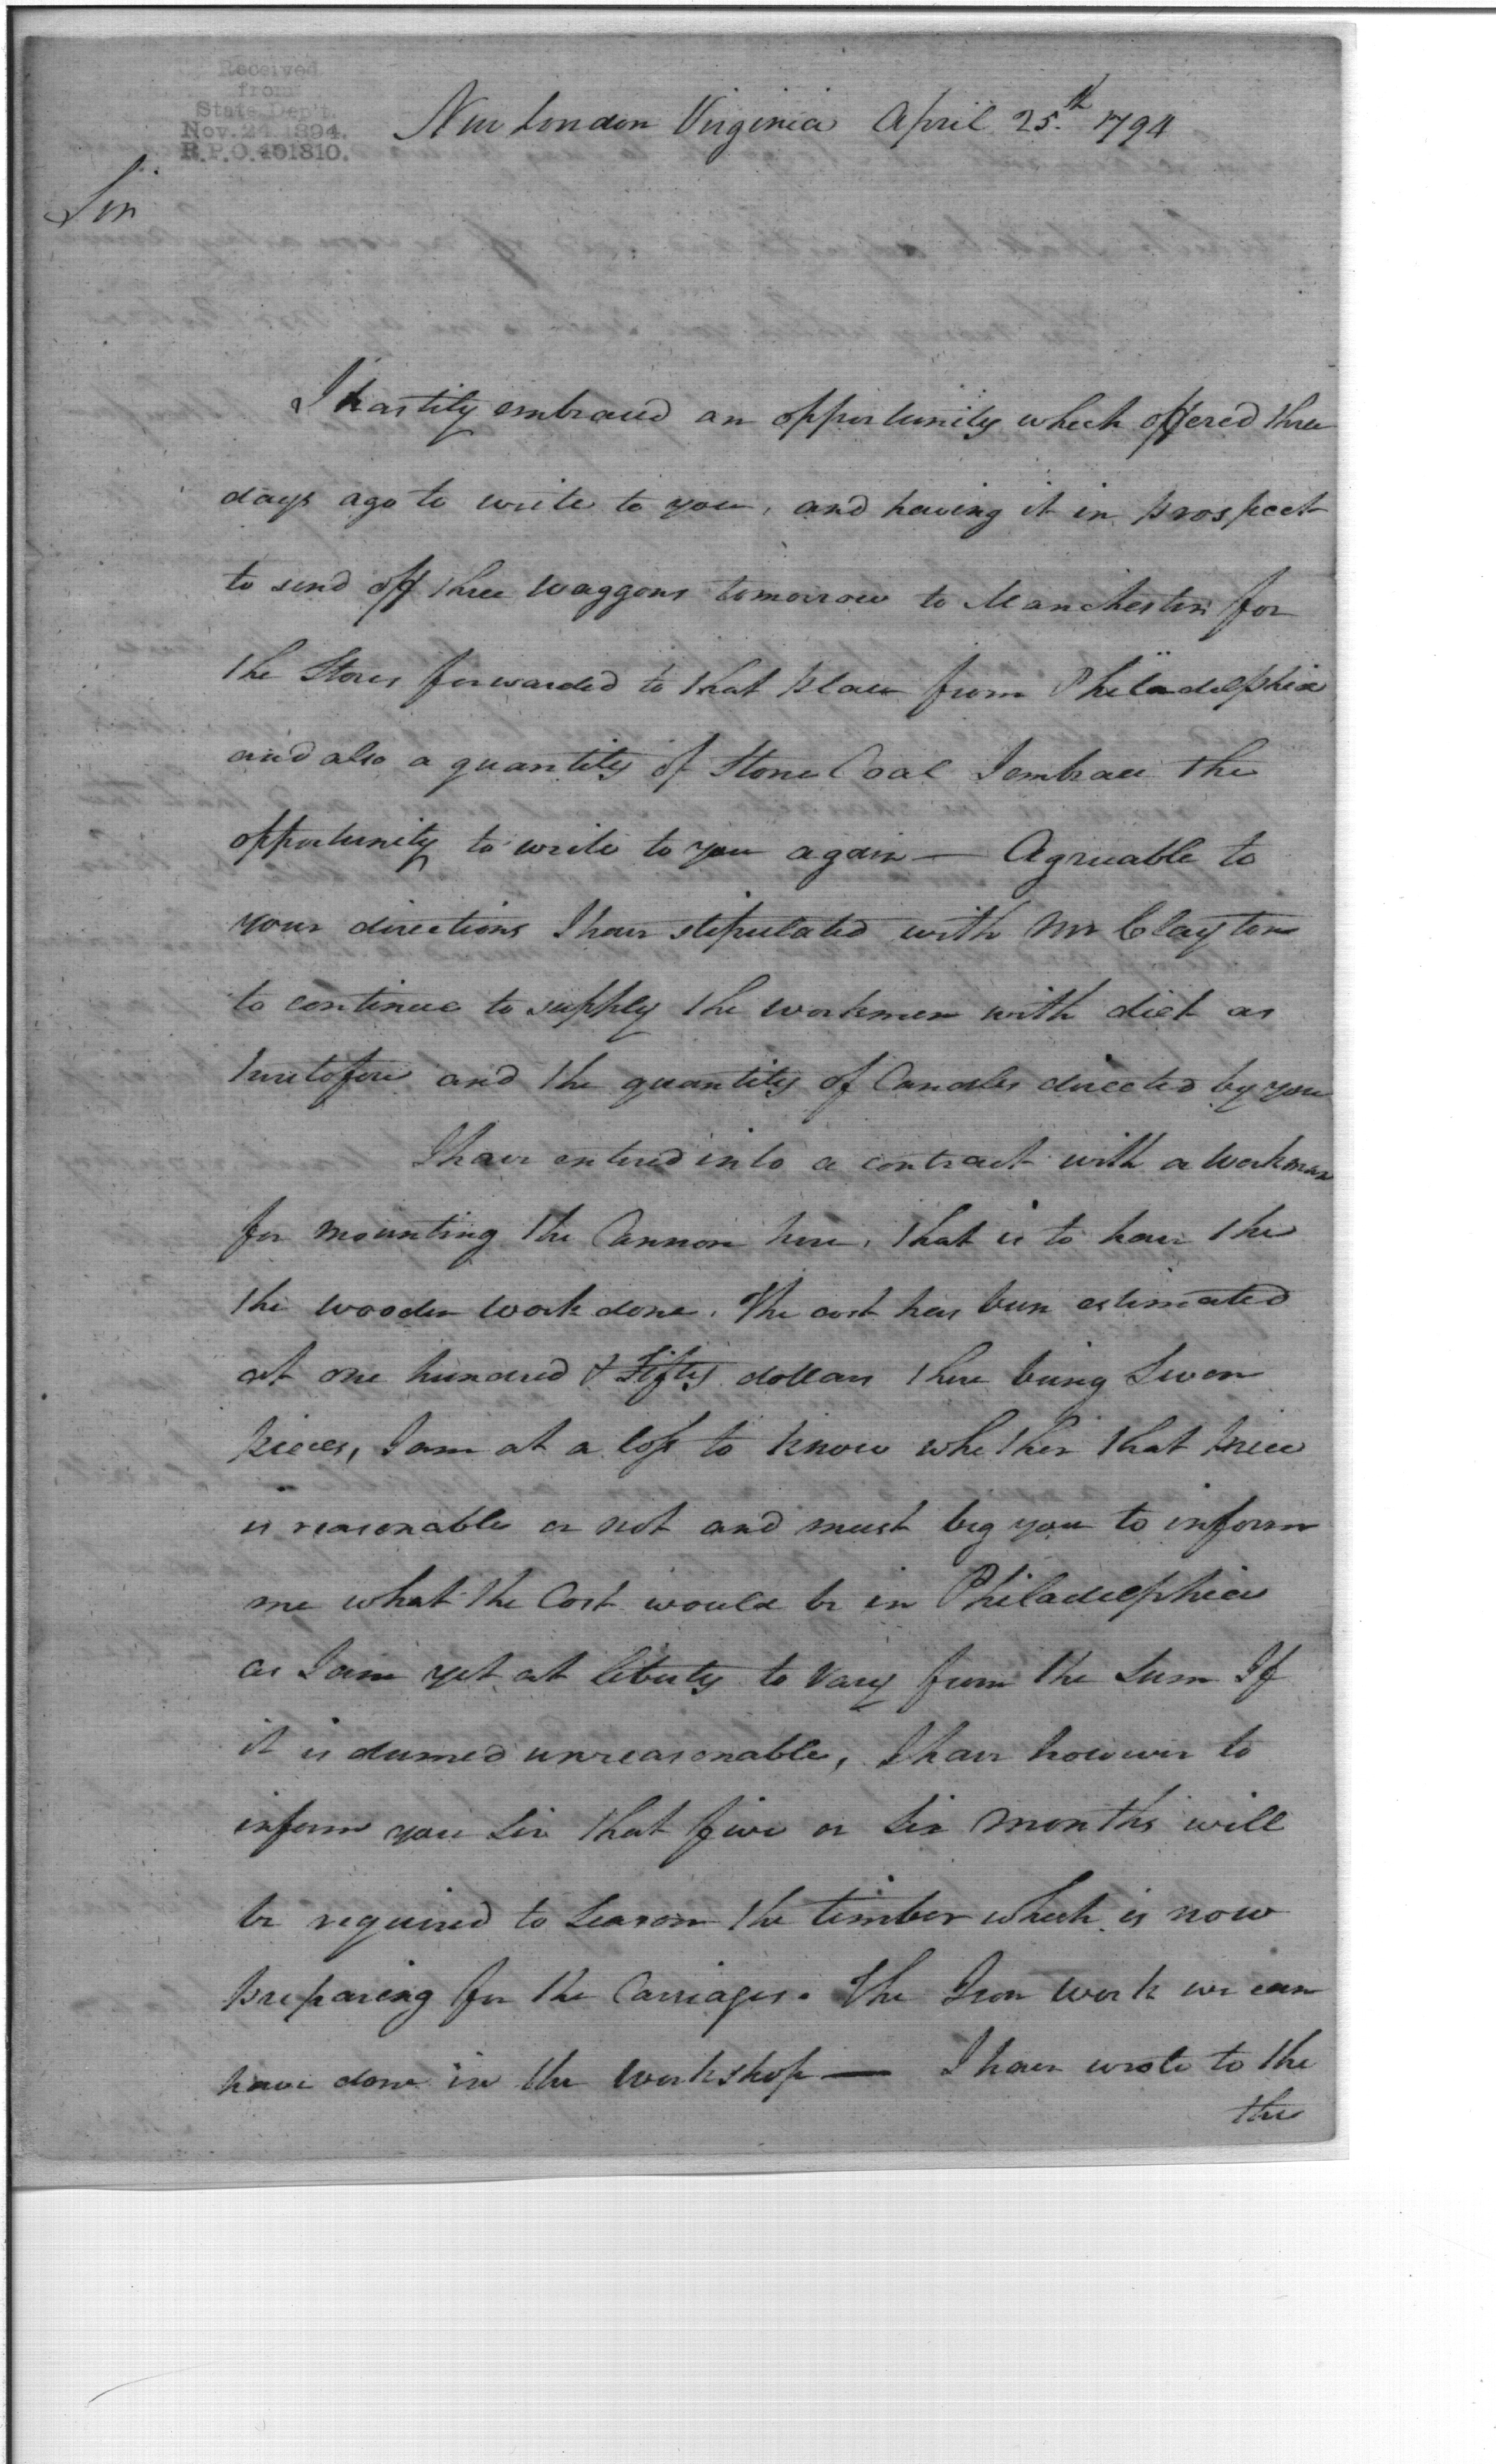 Received
from
State Dep't.
Nov. 24. 1894.
R.P.O. 401810.
New London Virginia April 25.th 1794
Sir
I hastily embraced an opportunity which offered three
days ago to write to you, and having it in prospect
to send off three waggons tomorrow to Manchester for
the Stores forwarded to that place from Philadelphia
and also a quantity of Stone Coal I embrace the
opportunity to write to you again — Agreeable to
your directions I have stipulated with Mr Clayton
to continue to supply the workmen with diet as
heretofore and the quantity of Candles directed by you
I have entered into a contract with a workman
for mounting the Cannon here, that is to have the
the wooden work done. The cost has been estimated
at one hundred & Fifty dollars there being Seven
pieces, I am at a loss to know whether that price
is reasonable or not and must beg you to inform
me what the Cost would be in Philadelphia
as I am yet at liberty to vary from the Sum If
it is deemed unreasonable, I have however to
inform you Sir that five or Six months will
be required to Season the timber which is now
preparing for the Carriages. The Iron work we can
have done in the workshop — I have wrote to the
the